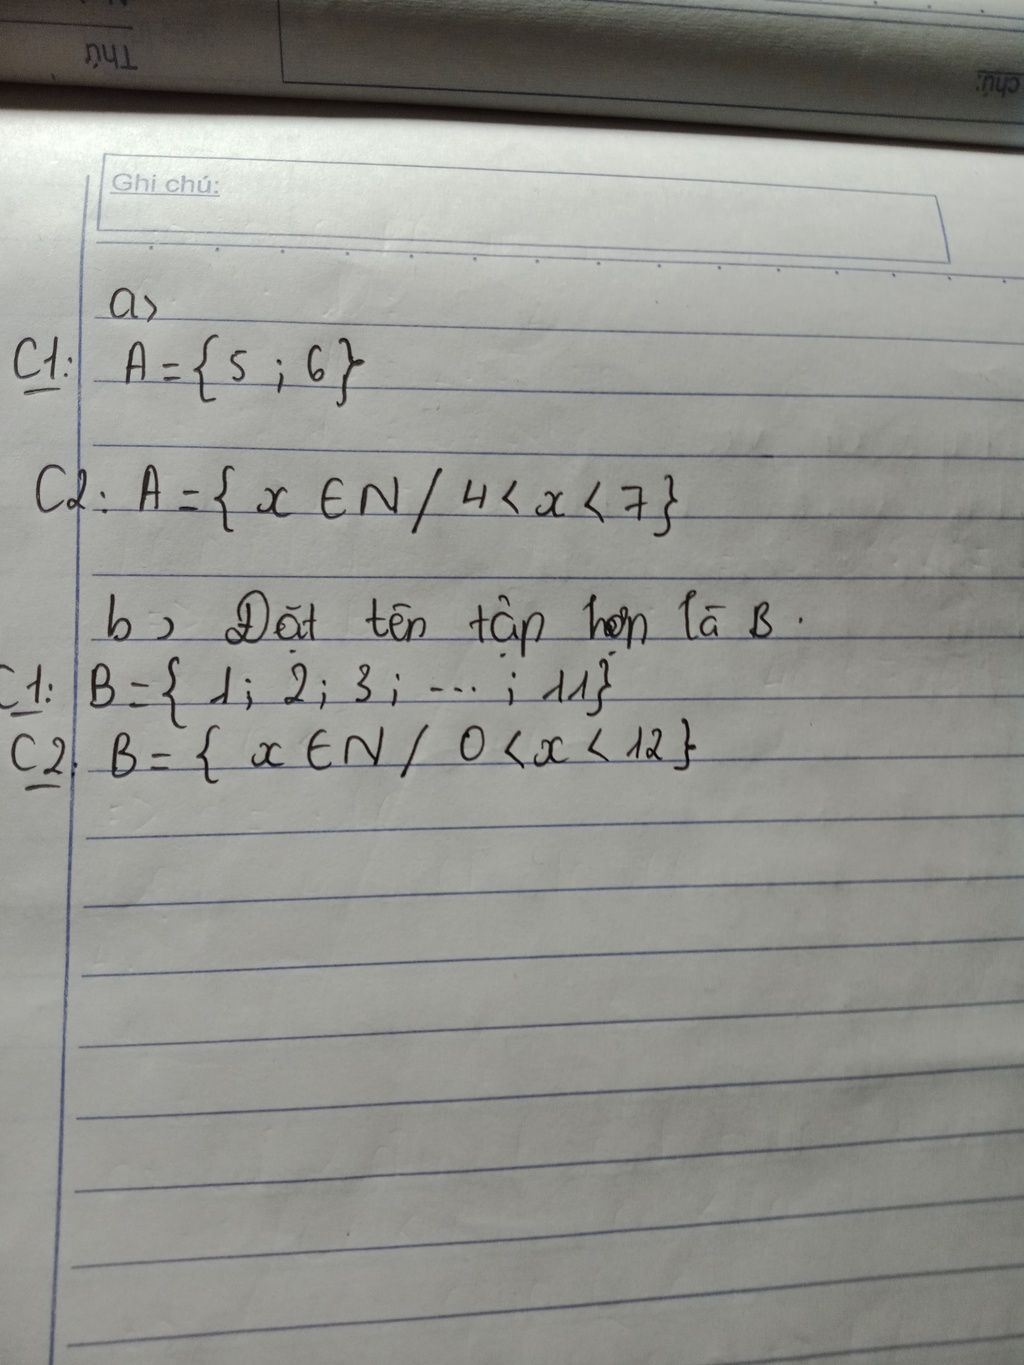 Thứ
chú:
Ghi chú:
a>
C1: A = { 5 ; 6 }
C2: A = { x ∈ N / 4 < x < 7 }
b> Đặt tên tập hợp là B.
C1: B = { 1 ; 2 ; 3 ; ... ; 11 }
C2: B = { x ∈ N / 0 < x < 12 }